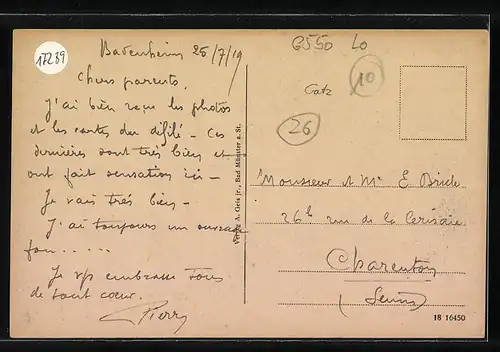 17289
25/7/19
6550 Lo
Chers parents,
10
Catz
J'ai bien reçu les photos
et les cartes du défilé - Ces
26
dernières sont très bien et
ont fait sensation ici -
Je vais très bien -
J'ai toujours un ouvrage
fou.....
Je vs embrasse tous
de tout cœur.
Pierre
Verlag A. Geis jr., Bad Münster a. St.
Monsieur et Me E. Bride
26 bis rue de la Cerisaie
Charenton
(Seine)
18 16450